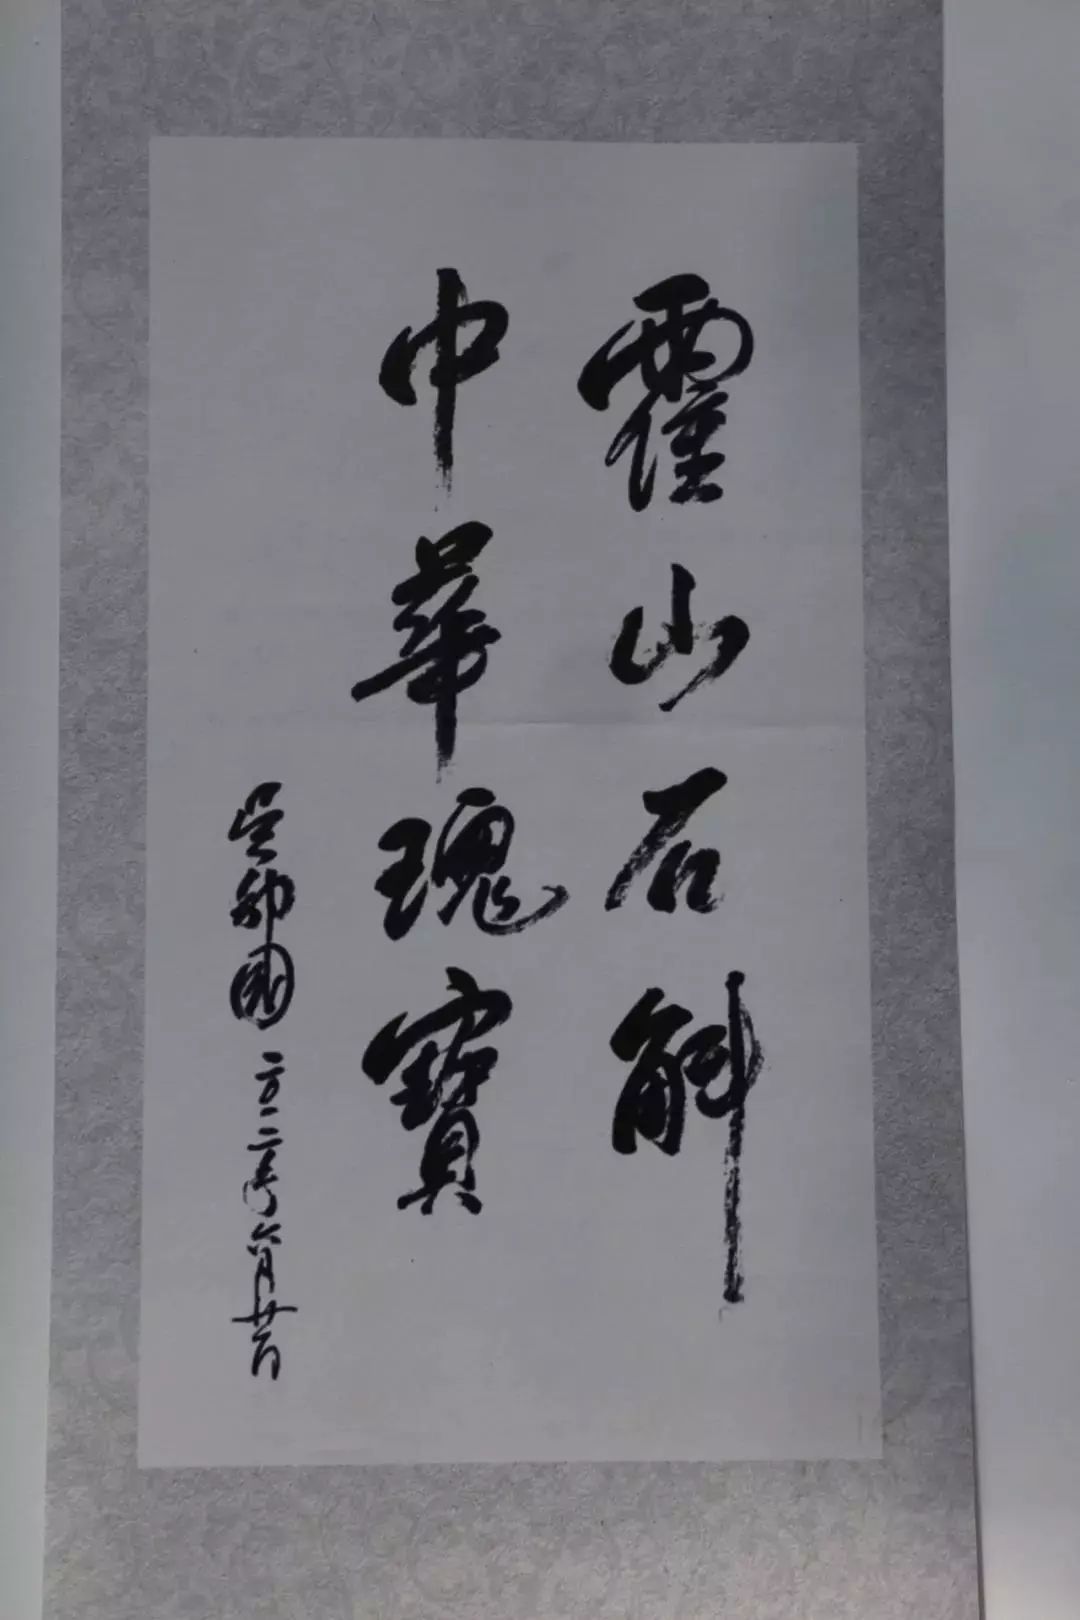 霍山石斛
中華瑰寶
吴邦國 二〇一二年六月廿一日